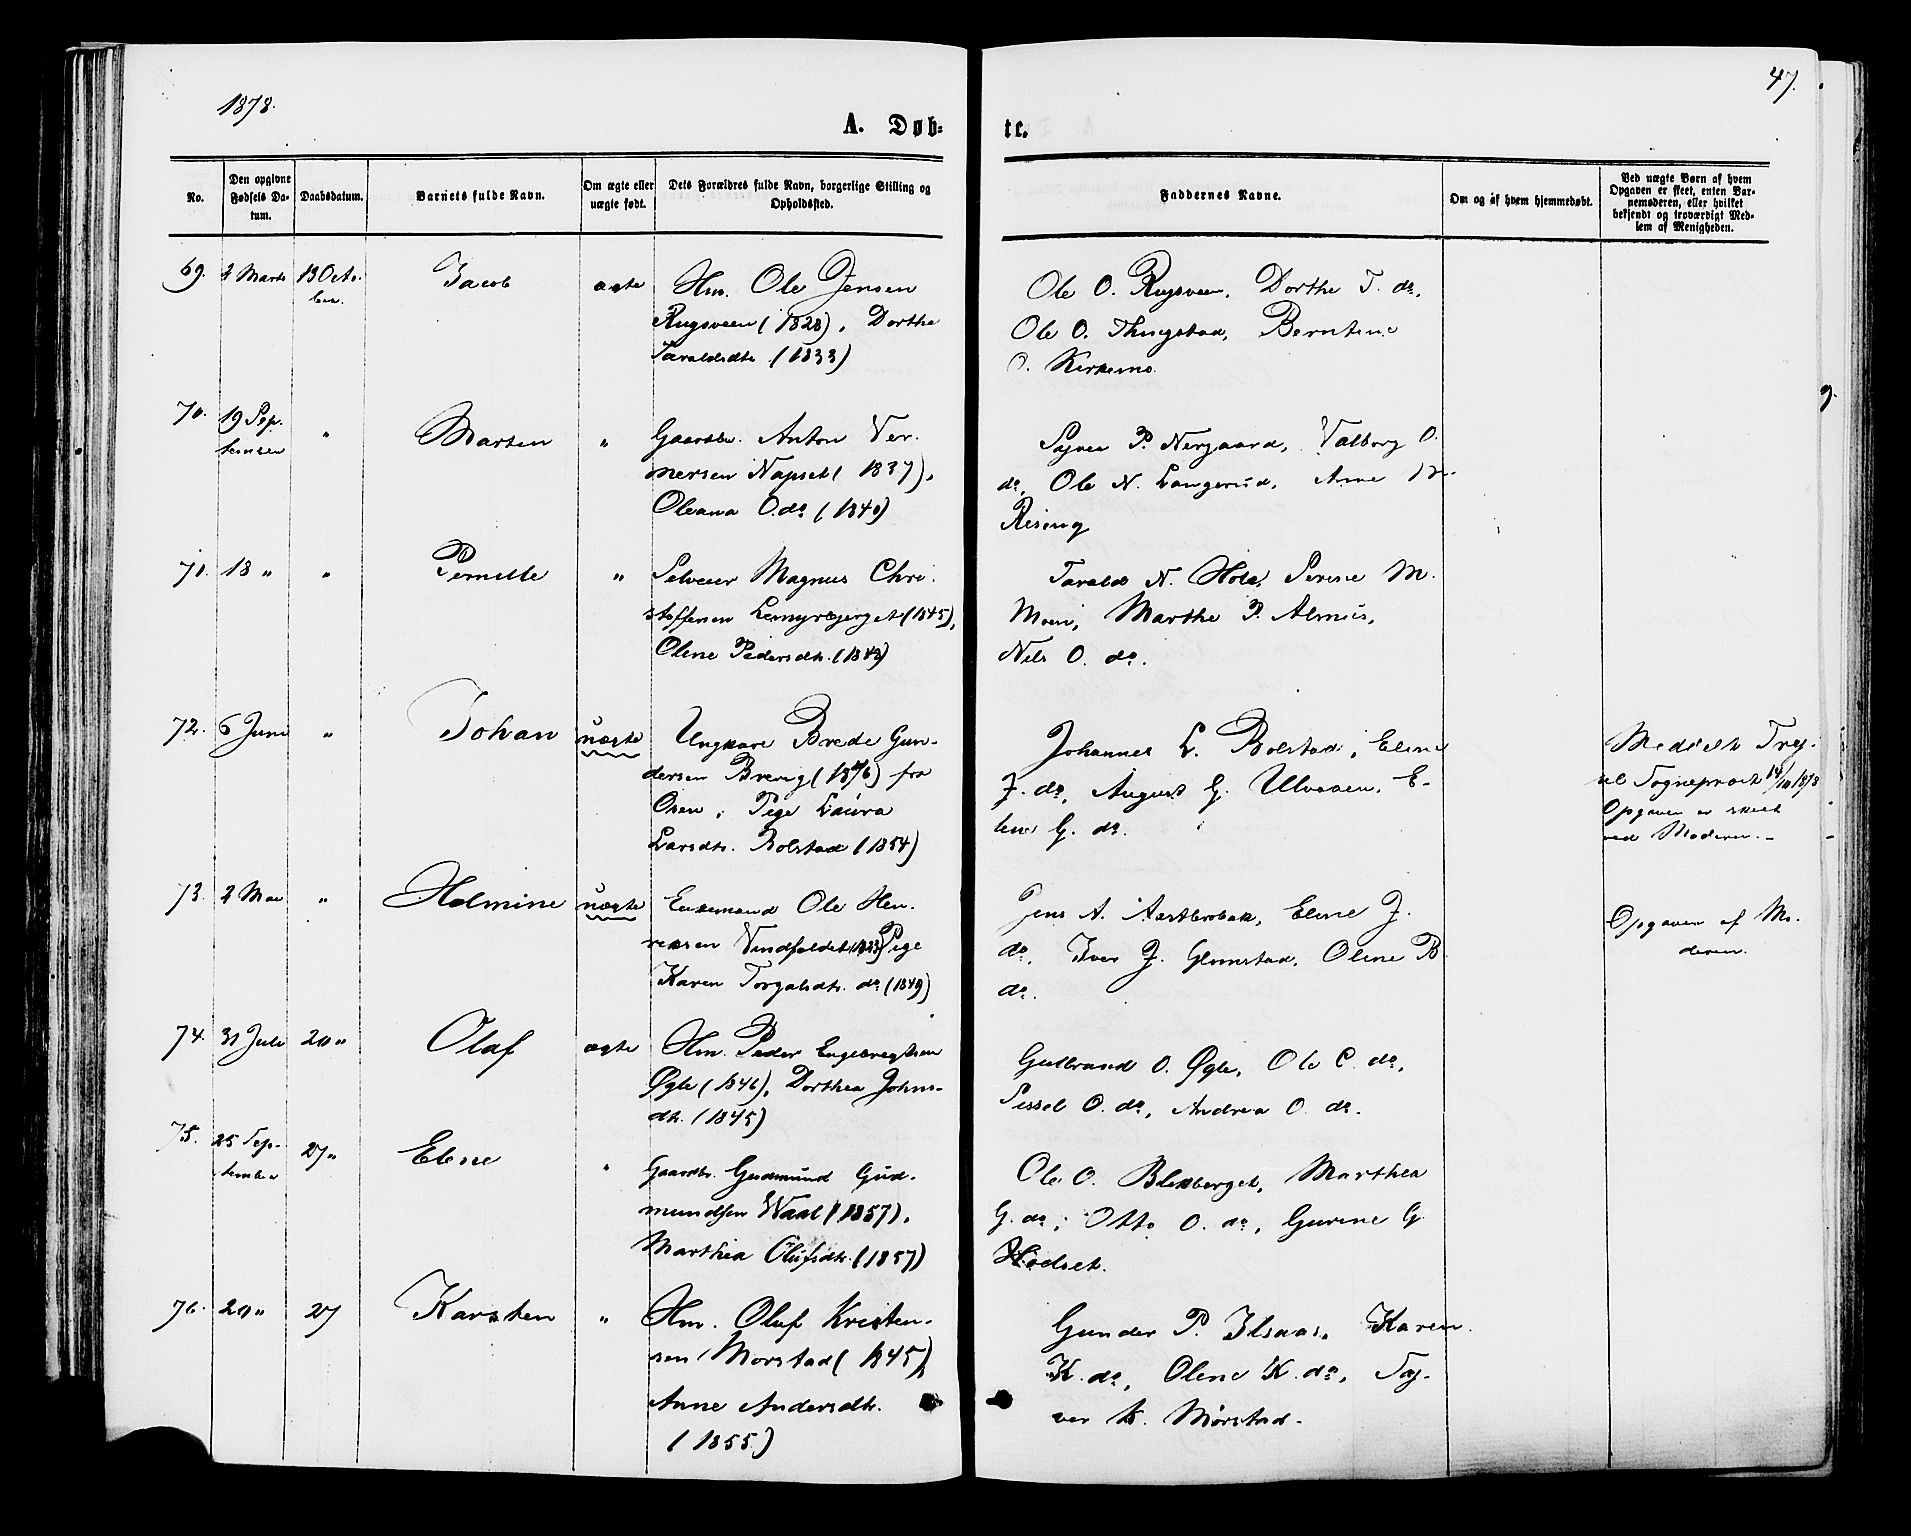 1878.
47.
A. Døb-
te.
No.
Den opgivne Fødsels Da-tum.
Daabsdatum.
Barnets fulde Navn.
Om ægte eller uægte født.
Dets Forældres fulde Navn, borgerlige Stilling og Opholdssted.
Faddernes Navne.
Om og af hvem hjemmedøbt.
Ved uægte Børn af hvem Opgaven er skeet, enten Bar-nemoderen, eller hvilket bekjendt og troværdigt Med-lem af Menigheden.
69. 2 Marts 13 Octo-ber. Jacob ægte
Hm. Ole Jensen
Rugsveen (1828), Dorthe
Taraldsdtr. (1833)
Ole O. Rugsveen, Dorthe T. do,
Ole O. Thingstad, Berntine
O. Kirkemo.
70. 19 Sep-tember " Marten "
Gaardbr. Anton Ver-
mersen Napset (1837),
Oleana O.do (1840)
Syver P. Nergaard, Valborg O.
do, Ole N. Langerud, Arne
Rising
71. 18 " " Pernelle "
Selveier Magnus Chri-
stoffersen Lemyrbjerget (1845),
Olene Pedersdtr. (1843)
Tarald N. Hole, Serine M.
Moen, Marthe P. Almus,
Nils O. do.
72. 6 Juni " Johan uægte
Ungkare Brede Gun-
dersen Brenig (1846) fra
Osen, Pige Laura
Larsdtr. Bolstad (1854)
Johannes L. Bolstad, Eline
J. do, August G. Ulvaaen, E-
line G. do.
Meddelt Try-
sil Sogneprest 14/10 1878
Opgaven er skeet
ved Moderen. -
73. 2 Mai " Helmine uægte
Enkemand Ole Hen-
riksen Vindfaldet (1833) Pige
Karen Torgalsdtr. do (1849)
Jens A. Aastebrobak, Eline J.
do, Iver J. Glomstad, Oline B.
do.
Opgaven af Mo-
deren.
74. 31 Juli 20 " Olaf ægte
Hm. Peder Engebregtsen
Øgle (1846), Dorthea Johns-
dtr. (1845)
Gulbrand O. Øgle, Ole C. do,
Sissel O. do, Andrea O. do.
75. 25 Sep-tember 27 " Elene "
Gaardbr. Gudmund Gud-
mundsen Waal (1857),
Marthea Olufsdtr. (1857)
Ole O. Blekberget, Marthea
G. do, Otto O. do, Gurine G.
Hodset.
76. 20 " 27 Karsten "
Hm. Oluf Kristen-
sen Morstad (1845),
Anne Andersdtr.
(1855)
Gunder P. Ilsaas, Karen
K. do, Olene K. do, Sy-
ver K. Mørstad.